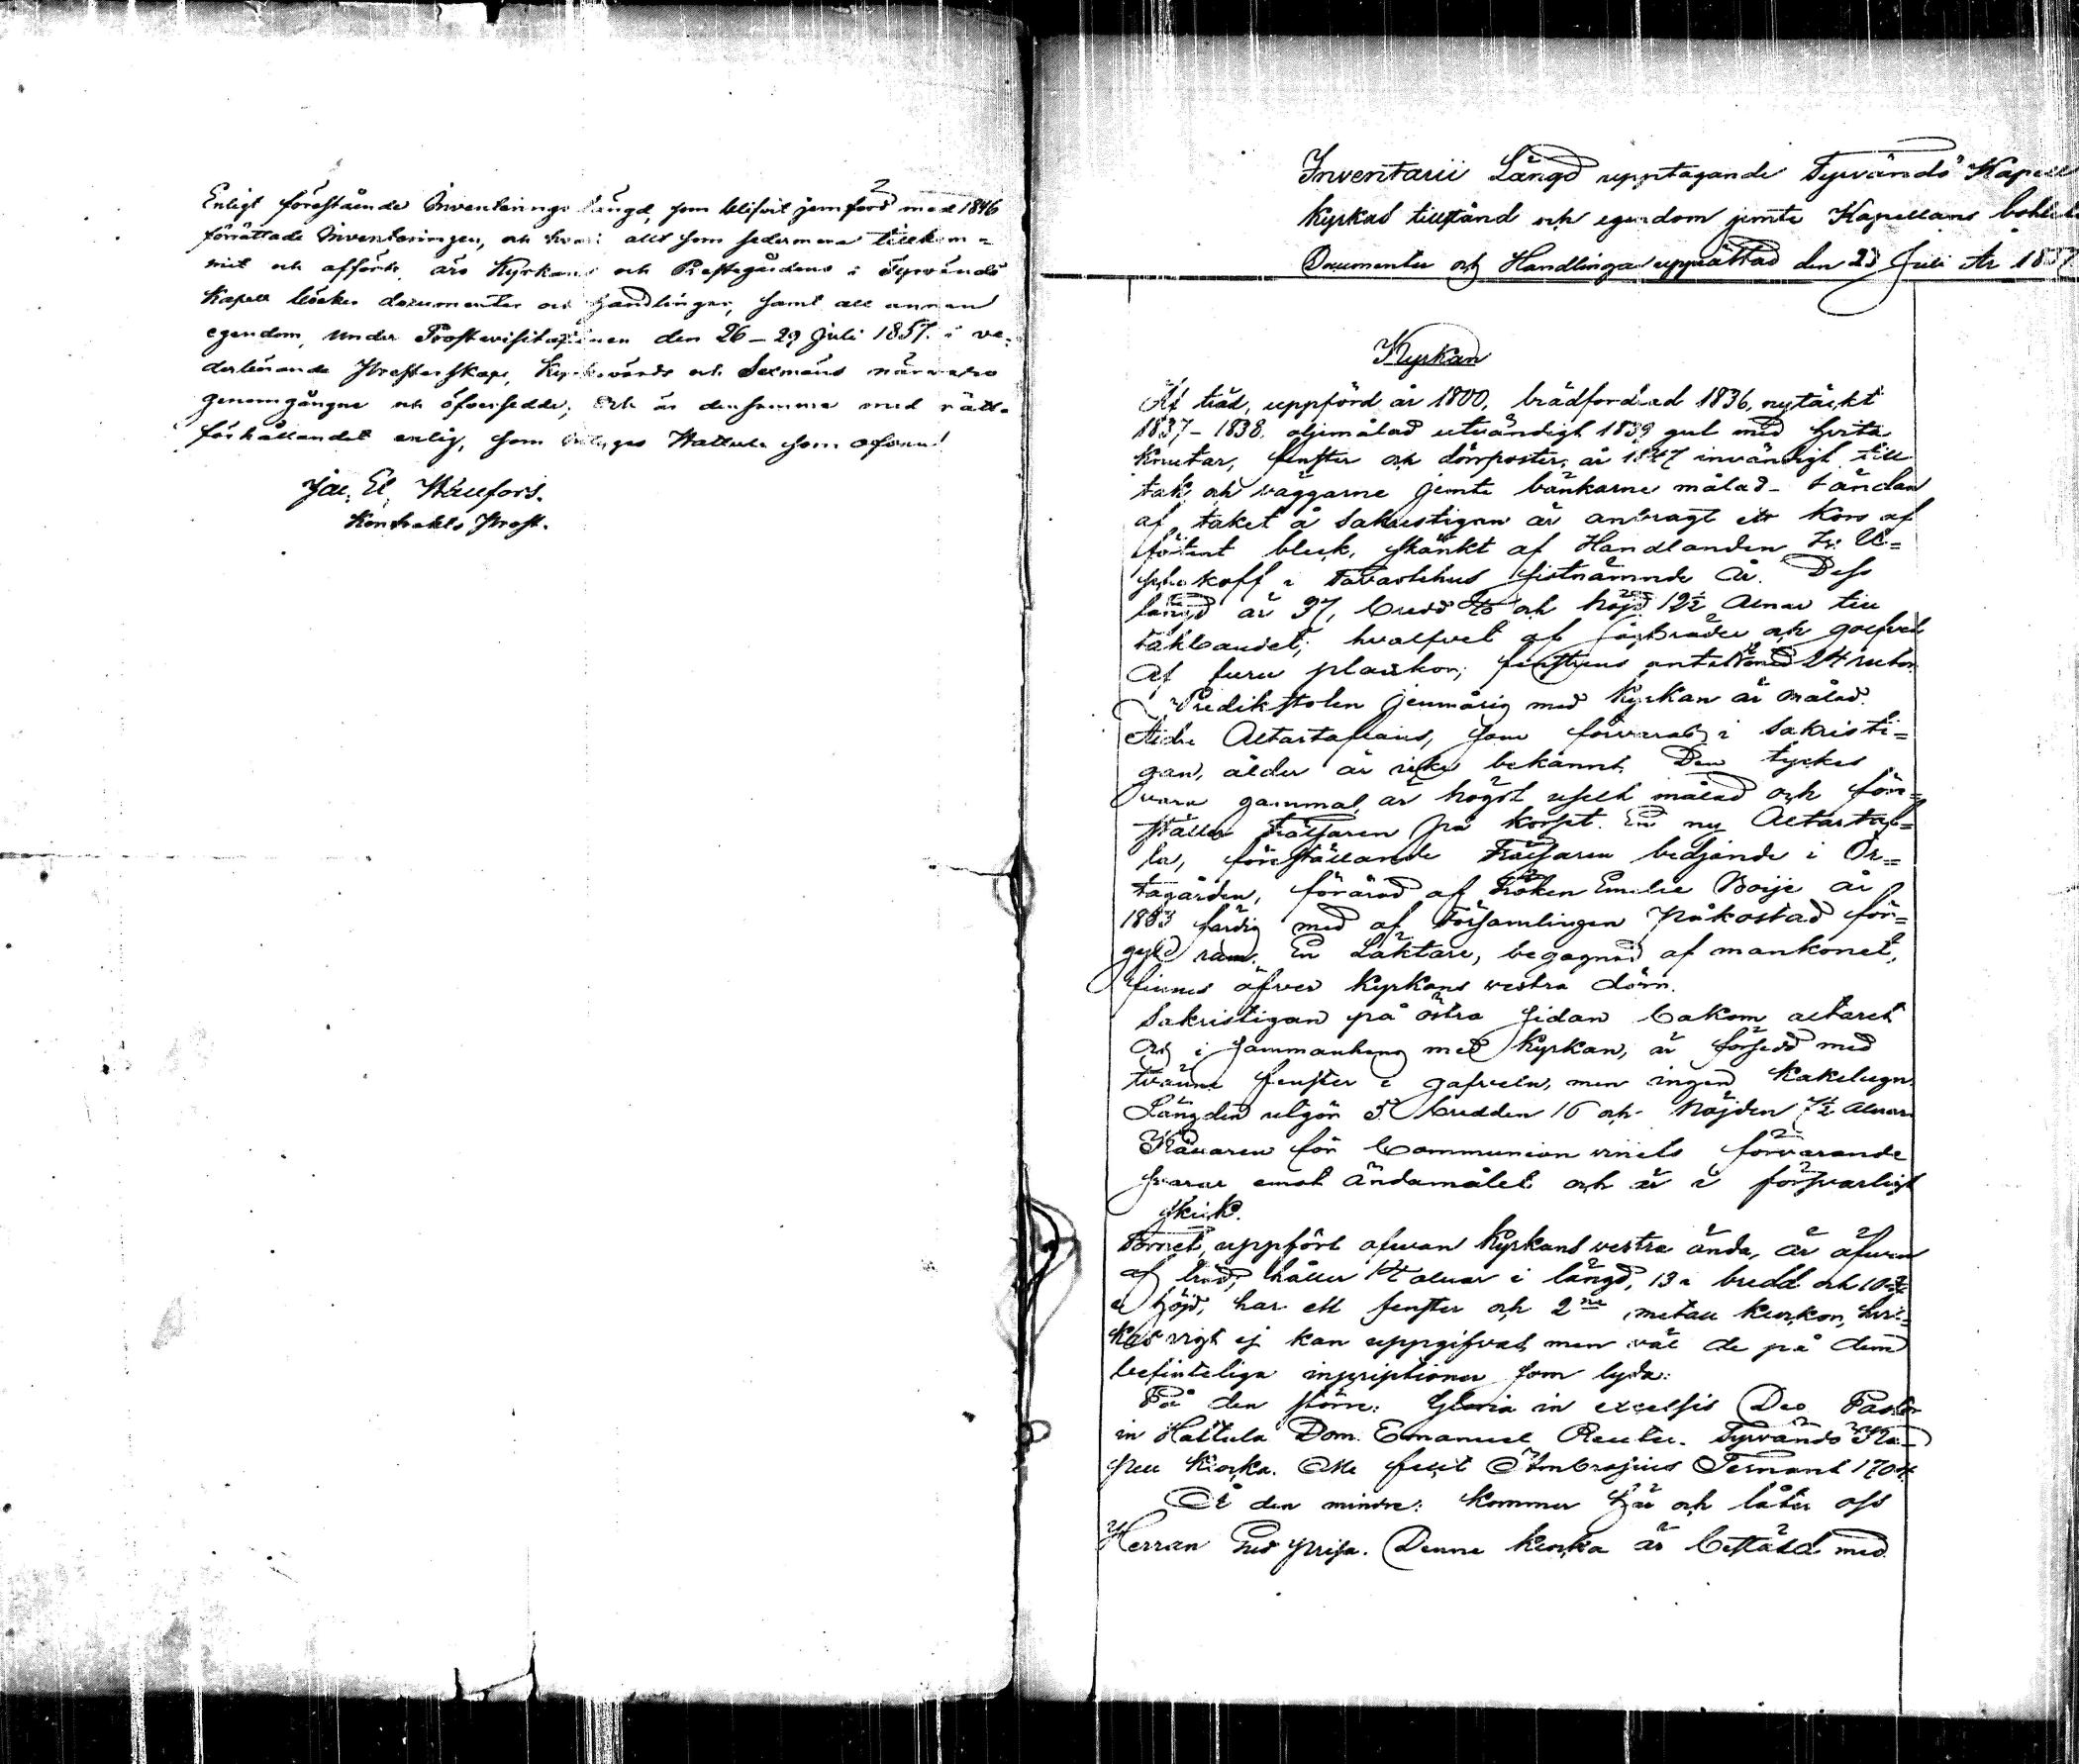 Enligt förestående Inventeringslängd, som blifvit jemförd med 1846
förrättade Inventeringen, och hvari allt som sedermera tillkom=
mit och afförts, äro Kyrkans och Prestegårdens i Tyrvändö
Kapell böcker documenter och handlingar, samt all annan
egendom, under Prostevisitationen den 26–29 Juli 1857. i ve=
derbörande Presterskaps, Kyrkovärds och Sexmäns närvaro
genomgångne och öfversedde; och är densamma med rätta
förhållandet enlig, som intygas Hattula som ofvan
Jac. El.
Kontrakts Prost.
Inventarii Längd upptagande Tyrvändö Kapell
Kyrkas tillstånd och egendom jemte Kapellans bohls
Documenter och Handlingar upprättad den 28 Juli År 1857
Kyrkan
Af träd, uppförd år 1800, brädfordrad 1836, nytäckt
1837–1838, oljemålad utvändigt 1839 gul med hvita
knutar, fenster och dörrposter, år 1847 invändigt till
tak och väggarne jemte bänkarne målad. Å ändan
af taket å Sakristigan är anbragt ett Kors af
förtent bleck, skänkt af Handlanden
i Tavastehus sistnämnde år. Dess
längd är 37, bredd och höjd 12½ alnar till
takbandet; hvalfvet af sågbräder och golfvet
af furu plankor; fenstrens antal med 24 rutor.
Predikstolen jemnårig med Kyrkan är målad.
Äldre Altartaflans, som förvaras i Sakristi=
gan, ålder är icke bekannt. Den tyckes
vara gammal, är högst uselt målad och före=
ställer Frälsaren på korset. En ny Altartaf=
la, föreställande Frälsaren bedjande i Ör=
tagården, förärad af Fröken Emelie Boije är
1853 färdig med af Församlingen påkostad för=
gyld ram. En Läktare, begagnad af mankönet,
finnes öfver Kyrkans vestra dörr.
Sakristigan på östra sidan bakom altaret
och i sammanhang med Kyrkan, är försedd med
tvänne fenster i gafveln, men ingen kakelugn.
Längden utgör bredden 16 och höjden 7½ alnar
Källaren för Communion vinets förvarande
svarar emot ändamålet och är i försvarligt
skick.
Tornet, uppfört ofvan Kyrkans vestra ända, är äfven
af träd, håller 14 alnar i längd, 13 i bredd och
i höjd, har ett fenster och 2ne metall klockor, hvil=
kas vigt ej kan uppgifvas, men väl de på dem
befinteliga inscriptioner som lyda:
På den större: Gloria in excelsis Deo Pastor
in Hattula Dom. Emanuel Reuter. Tyrvändö Ka=
pell Klocka. Me fecit Ambrosius Fernant 1704.
På den mindre: Kommer här och låter oss
Herran Gud prisa. Denne klocka är bestäld med